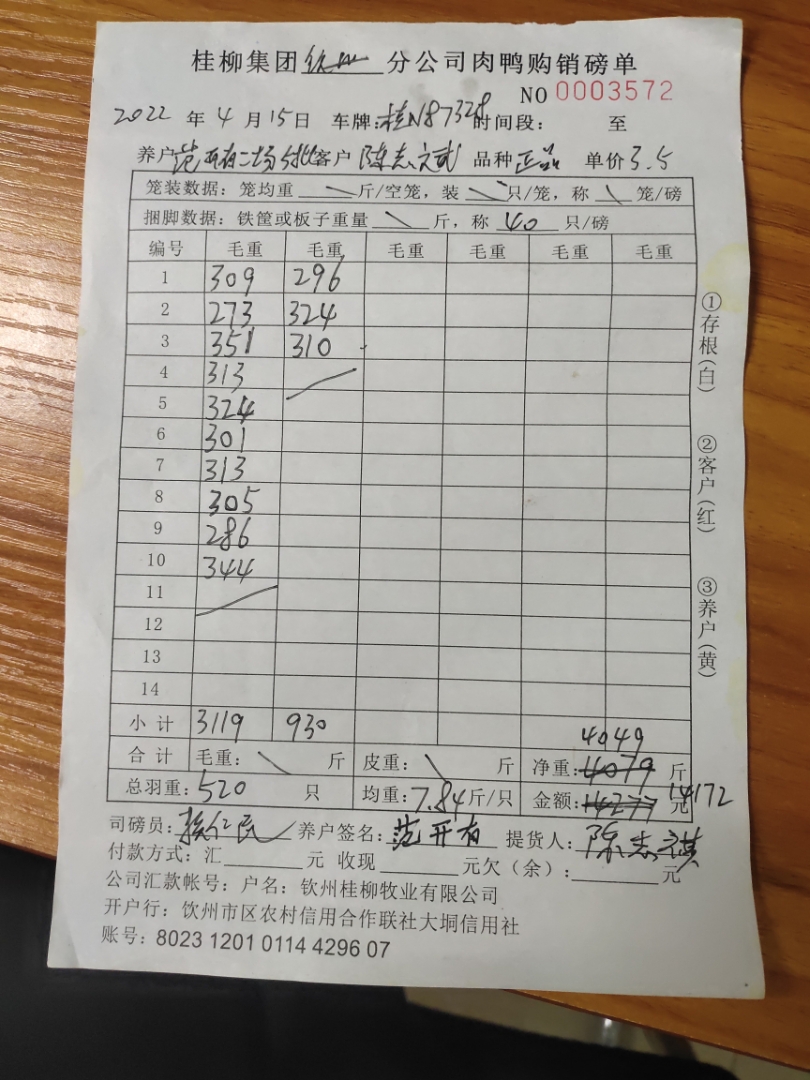 桂柳集团钦州分公司肉鸭购销磅单
NO 0003572
2022 年 4 月 15 日 车牌:桂N87328 时间段: 至
养户 范开有二场5批 客户 陈志 品种 正品 单价 3.5
笼装数据: 笼均重 \ 斤/空笼, 装 \ 只/笼, 称 \ 笼/磅
捆脚数据: 铁筐或板子重量 \ 斤, 称 40 只/磅
编号 毛重 毛重 毛重 毛重 毛重 毛重
1 309 296
2 273 324
3 351 310
4 313
5 324
6 301
7 313
8 305
9 286
10 344
11
12
13
14
小计 3119 930 4049
合计 毛重: \ 斤 皮重: \ 斤 净重: 4079 斤
总羽重: 520 只 均重: 7.84 斤/只 金额: 14277 元 14172
司磅员: 养户签名: 范开有 提货人: 陈志
付款方式: 汇 元 收现 元欠(余): 元
公司汇款帐号: 户名: 钦州桂柳牧业有限公司
开户行: 饮州市区农村信用合作联社大垌信用社
账号: 8023 1201 0114 4296 07
①存根(白)
②客户(红)
③养户(黄)